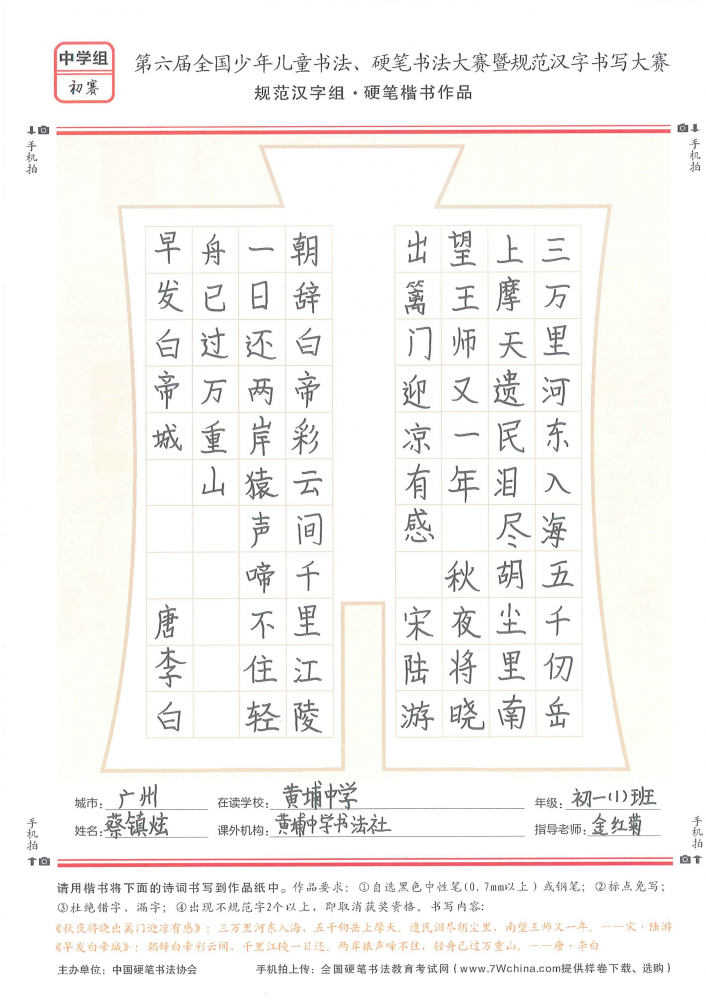 中学组
初赛
第六届全国少年儿童书法、硬笔书法大赛暨规范汉字书写大赛
规范汉字组·硬笔楷书作品
手机拍
手机拍
三万里河东入海五千仞岳
上摩天遗民泪尽胡尘里南
望王师又一年 秋夜将晓
出篱门迎凉有感 宋陆游
朝辞白帝彩云间千里江陵
一日还两岸猿声啼不住轻
舟已过万重山
早发白帝城 唐李白
城市：广州 在读学校：黄埔中学 年级：初一(1)班
姓名：蔡镇炫 课外机构：黄埔中学书法社 指导老师：金红菊
手机拍
手机拍
请用楷书将下面的诗词书写到作品纸中。作品要求：①自选黑色中性笔(0.7mm以上)或钢笔；②标点免写；
③杜绝错字、漏字；④出现不规范字2个以上，即取消获奖资格。书写内容：
《秋夜将晓出篱门迎凉有感》：三万里河东入海，五千仞岳上摩天。遗民泪尽胡尘里，南望王师又一年。——宋·陆游
《早发白帝城》：朝辞白帝彩云间，千里江陵一日还。两岸猿声啼不住，轻舟已过万重山。——唐·李白
主办单位：中国硬笔书法协会 手机拍上传：全国硬笔书法教育考试网（www.7Wchina.com提供样卷下载、选购）